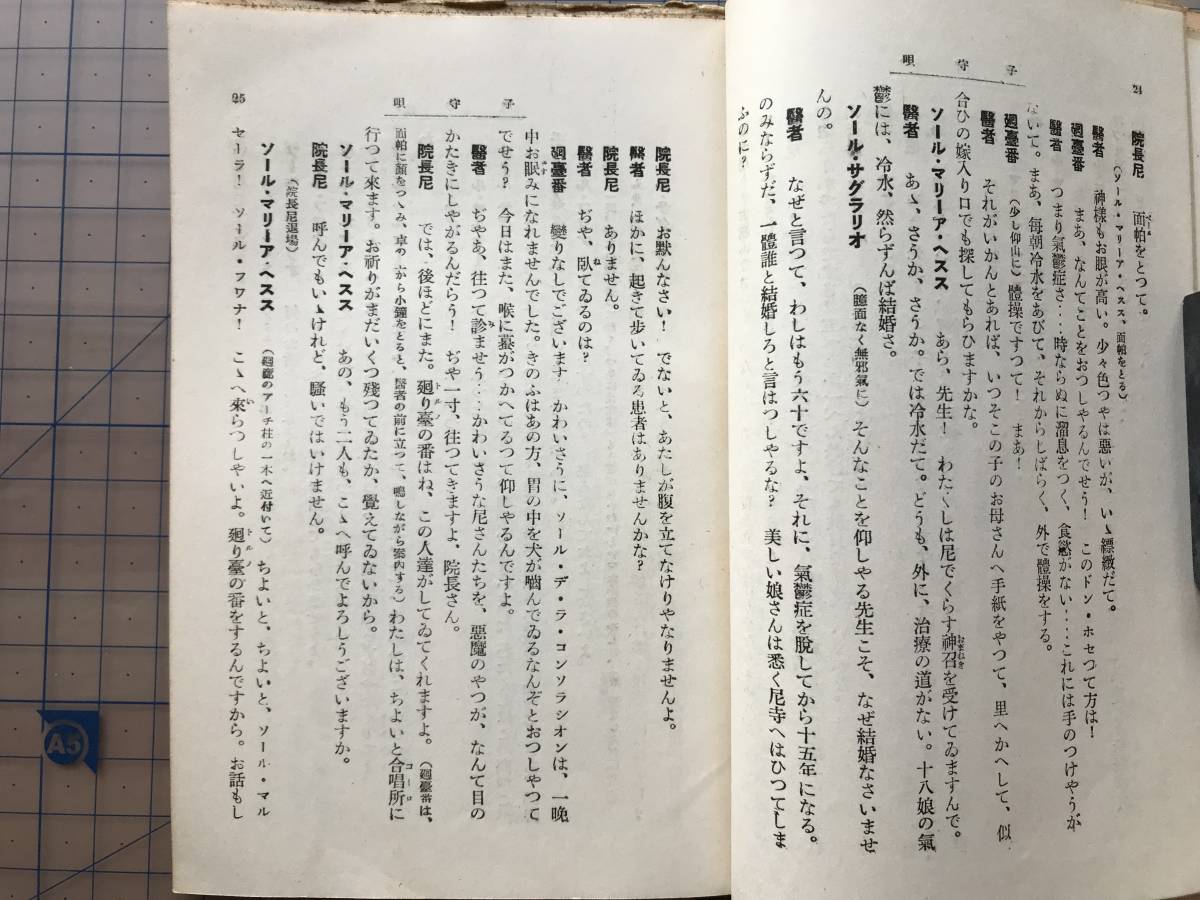 24
子守唄
院長尼　面帕をとつて。
（ソール・マリーア・ヘスス、面帕をとる）
醫者　神樣もお眼が高い。少々色つやは惡いが、いゝ縹緻だて。
廻臺番　まあ、なんてことをおつしやるんでせう！　このドン・ホセつて方は！
醫者　つまり氣鬱症さ‥‥時ならぬに溜息をつく、食慾がない‥‥これには手のつけやうが
ないて。まあ、每朝冷水をあびて、それからしばらく、外で體操をする。
廻臺番　（少し仰山に）體操ですつて！　まあ！
醫者　それがいかんとあれば、いつそこの子のお母さんへ手紙をやつて、里へかへして、似
合ひの嫁入り口でも探してもらひますかな。
ソール・マリーア・ヘスス　あら、先生！　わたくしは尼でくらす神召を受けてゐますんで。
醫者　あゝ、さうか、さうか。では冷水だて。どうも、外に、治療の道がない。十八娘の氣
鬱には、冷水、然らずんば結婚さ。
ソール・サグラリオ　（臆面なく無邪氣に）そんなことを仰しやる先生こそ、なぜ結婚なさいませ
んの。
醫者　なぜと言つて、わしはもう六十ですよ、それに、氣鬱症を脫してから十五年になる。
のみならずだ、一體誰と結婚しろと言はつしやるな？　美しい娘さんは悉く尼寺へはひつてしま
ふのに？
子守唄
院長尼　お默んなさい！　でないと、あたしが腹を立てなけりやなりませんよ。
醫者　ほかに、起きて歩いてゐる患者はありませんかな？
院長尼　ありません。
醫者　ぢや、臥てゐるのは？
廻臺番　變りなしでございます　かわいさうに、ソール・デ・ラ・コンソラシオンは、一晩
中お眠みになれませんでした。きのふはあの方、胃の中を犬が嚙んでゐるなんぞとおつしやつて
でせう？　今日はまた、喉に蟇がつかへてるつて仰しやるんですよ。
醫者　ぢやあ、往つて診ませう‥‥かわいさうな尼さんたちを、惡魔のやつが、なんて目の
かたきにしやがるんだらう！　ぢや一寸、往つてきますよ、院長さん。
院長尼　では、後ほどにまた。廻り臺の番はね、この人達がしてゐてくれますよ。（廻臺番は、
面帕に顏をつゝみ、卓の上から小鐘をとると、醫者の前に立つて、鳴しながら案內する）わたしは、ちよいと合唱所に
行つて來ます。お祈りがまだいくつ殘つてゐたか、覺えてゐないから。
ソール・マリーア・ヘスス　あの、もう二人も、こゝへ呼んでよろしうございますか。
院長尼　呼んでもいゝけれど、騷いではいけません。
（院長尼退場）
ソール・マリーア・ヘスス　（廻廊のアーチ柱の一本へ近付いて）ちよいと、ちよいと、ソール・マル
セーラ！　ソール・フワナ！　こゝへ來らつしやいよ。廻り臺の番をするんですから。お話もし
25
A5